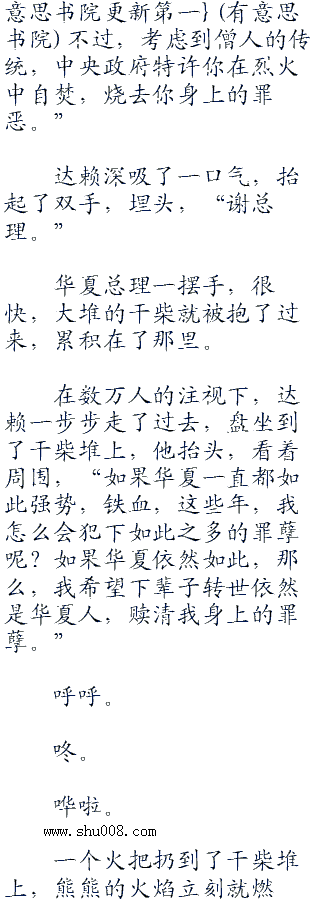 意思书院更新第一} (有意思
书院) 不过，考虑到僧人的传
统，中央政府特许你在烈火
中自焚，烧去你身上的罪
恶。”
达赖深吸了一口气，抬
起了双手，埋头，“谢总
理。”
华夏总理一摆手，很
快，大堆的干柴就被抱了过
来，累积在了那里。
在数万人的注视下，达
赖一步步走了过去，盘坐到
了干柴堆上，他抬头，看着
周围，“如果华夏一直都如
此强势，铁血，这些年，我
怎么会犯下如此之多的罪孽
呢？如果华夏依然如此，那
么，我希望下辈子转世依然
是华夏人，赎清我身上的罪
孽。”
呼呼。
咚。
哗啦。
www.shu008.com
一个火把扔到了干柴堆
上，熊熊的火焰立刻就燃